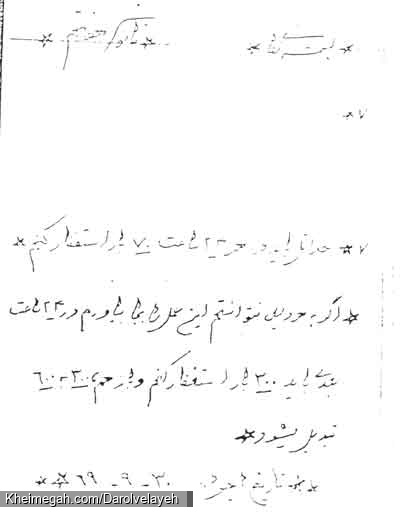 * بسمه تعالی *
* ۷
۷ * حداقل باید در هر ۲۴ ساعت ۷۰ بار استغفار کنم *
* اگر به هر دلیل نتوانستم این عمل را بجا بیاورم در ۲۴ ساعت
بعدی باید ۳۰۰ بار استغفار کنم و ۳۰۰ - ۶۰۰
تبدیل میشود *
* تاریخ اجرا ۳۰ - ۹ - ۶۹ **
Kheimegah.com/Darolvelayeh